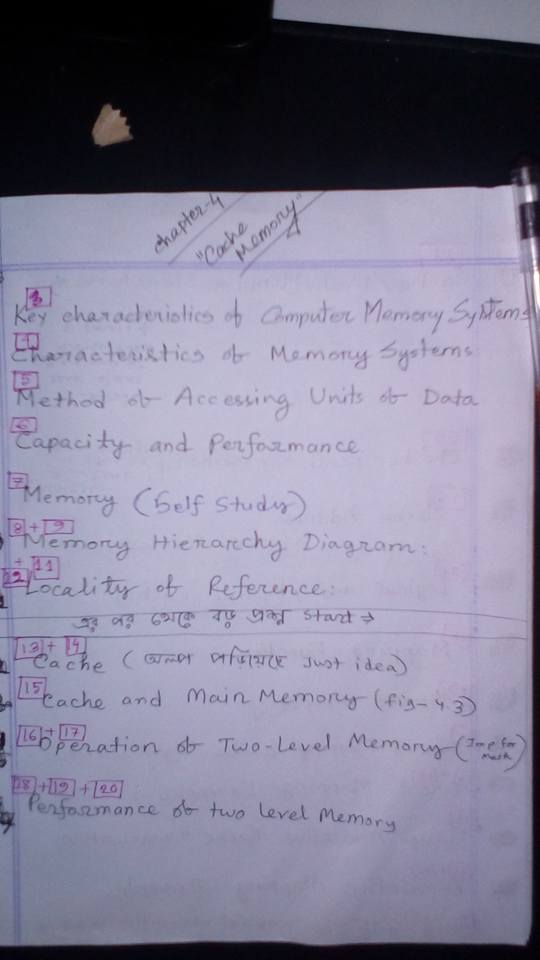 chapter-4
"Cache
Memory"
3
Key characteristics of Computer Memory Systems
4
Characteristics of Memory Systems
5
Method of Accessing Units of Data
6
Capacity and Performance
7
Memory (Self Study)
8 + 9
Memory Hierarchy Diagram:
+ 11
12 Locality of Reference:
এর পর থেকে বড় প্রশ্ন start →
13 + 14
Cache (অল্প পড়িয়েছে Just idea)
15
Cache and Main Memory (fig-4.3)
16 + 17
Operation of Two-Level Memory (Imp for math)
18 + 19 + 20
Performance of two level Memory